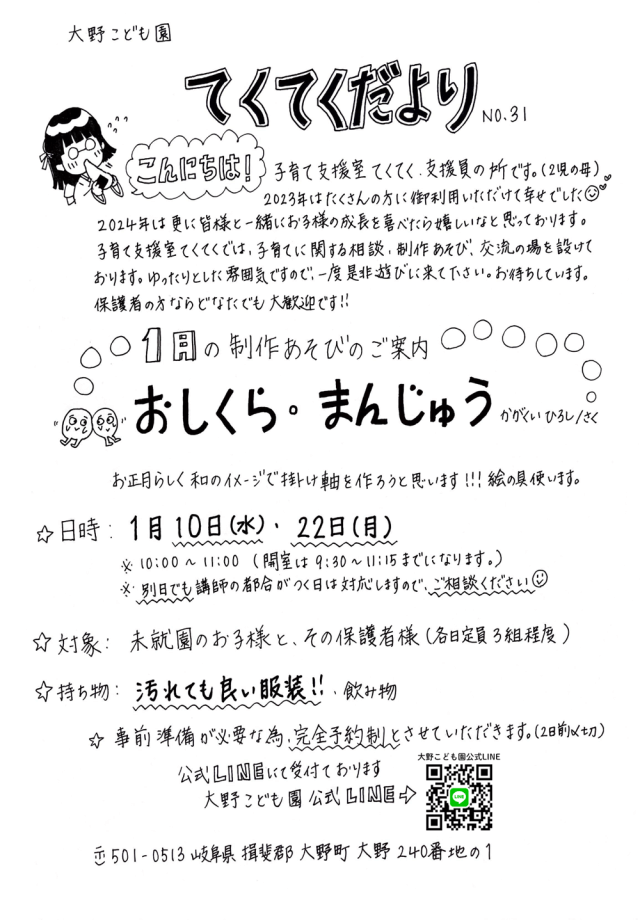 大野こども園
てくてくだより NO.31
こんにちは! 子育て支援室てくてく.支援員の所です。(2児の母)
2023年はたくさんの方に御利用いただけて幸せでした
2024年は更に皆様と一緒にお子様の成長を喜べたら嬉しいなと思っております。
子育て支援室てくてくでは、子育てに関する相談、制作あそび、交流の場を設けて
おります。ゆったりとした雰囲気ですので、一度是非遊びに来て下さい。お待ちしています。
保護者の方ならどなたでも大歓迎です!!
1月の制作あそびのご案内
おしくら。まんじゅう かがくいひろし/さく
お正月らしく和のイメージで掛け軸を作ろうと思います!!!絵の具使います。
☆日時: 1月10日(水)・22日(月)
※10:00~11:00 (開室は9:30~11:15までになります。)
※別日でも講師の都合がつく日は対応しますので、ご相談ください
☆対象: 未就園のお子様と、その保護者様(各日定員3組程度)
☆持ち物: 汚れても良い服装!!、飲み物
☆事前準備が必要な為、完全予約制とさせていただきます。(2日前〆切)
公式LINEにて受付ております
大野こども園公式LINE⇨
大野こども園公式LINE
LINE
〒501-0513 岐阜県揖斐郡大野町大野240番地の1